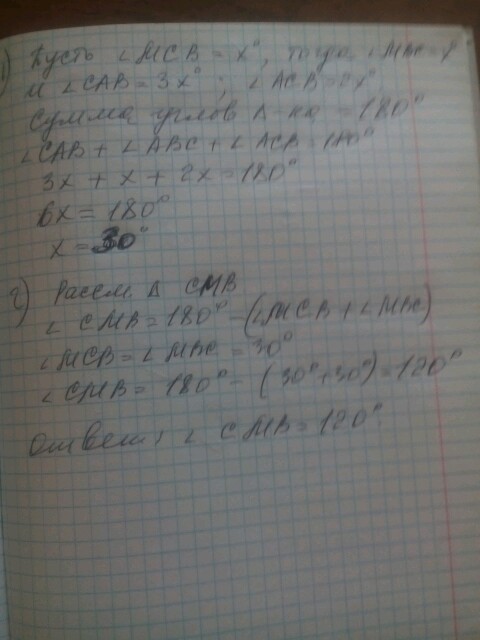 1) Пусть ∠MCB = x°, тогда ∠MBC = x°
и ∠CAB = 3x° ; ∠ACB = 2x°
Сумма углов Δ-ка = 180°
∠CAB + ∠ABC + ∠ACB = 180°
3x + x + 2x = 180°
6x = 180°
x = 30°
2) Рассм. Δ CMB
∠ CMB = 180° - (∠MCB + ∠MBC)
∠MCB = ∠MBC = 30°
∠CMB = 180° - (30° + 30°) = 120°
Ответ: ∠ CMB = 120°